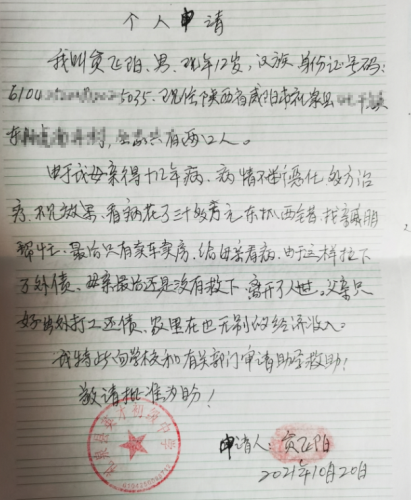 个人申请
我叫贠飞阳、男、现年12岁,汉族 身份证号码:
6104 5035.现住陕西省咸阳市礼泉县
东 ,全家共有两口人。
由于我母亲得十几年病、病情不断恶化 多方治
疗、不见效果、看病花了三十多万元 东挪西借、找亲戚朋
帮忙、最后只有卖车卖房,给母亲看病.由于这样拉下
了外债、母亲最后还是没有救下,离开了人世,父亲只
好出外打工还债、家里在也无别的经济收入。
我特此向学校和有关部门申请助学救助!
敬请批准为盼!
申请人:贠飞阳
2021年10月20日